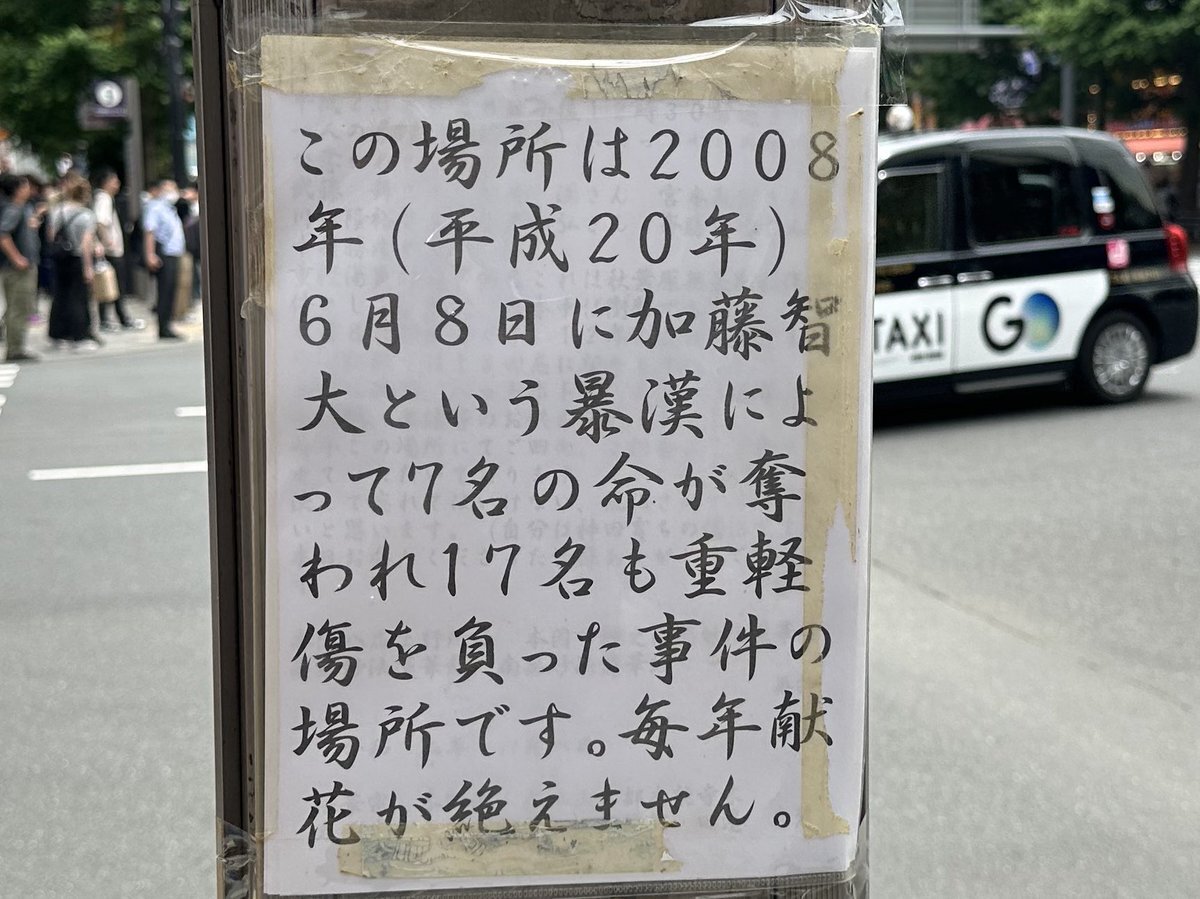 この場所は2008
年(平成20年)
6月8日に加藤智
大という暴漢によ
って7名の命が奪
われ17名も重軽
傷を負った事件の
場所です。毎年献
花が絶えません。
TAXI
GO